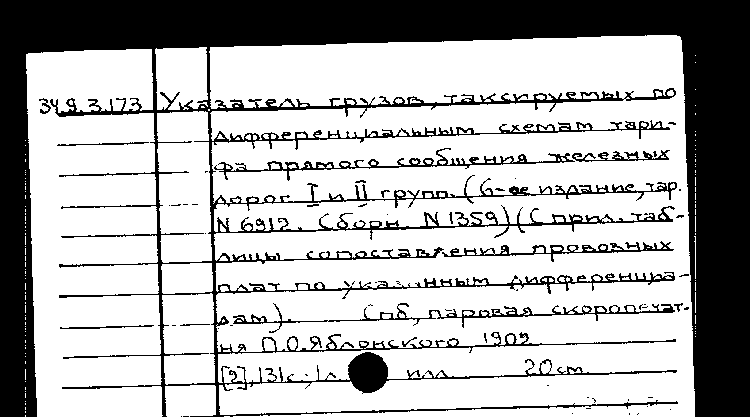 34.9.3.173 Указатель грузов, таксируемых по
дифференциальным схемам тари-
фа прямого сообщения железных
дорог I и II групп. (6-ое издание, тар.
N 6912. Сборн. N 1359) (С прил. таб-
лицы сопоставления провозных
плат по указанным дифференциа-
лам). Спб, паровая скоропечат-
ня П.О.Яблонского, 1909
[2], 131с.; 1л. илл. 20см.